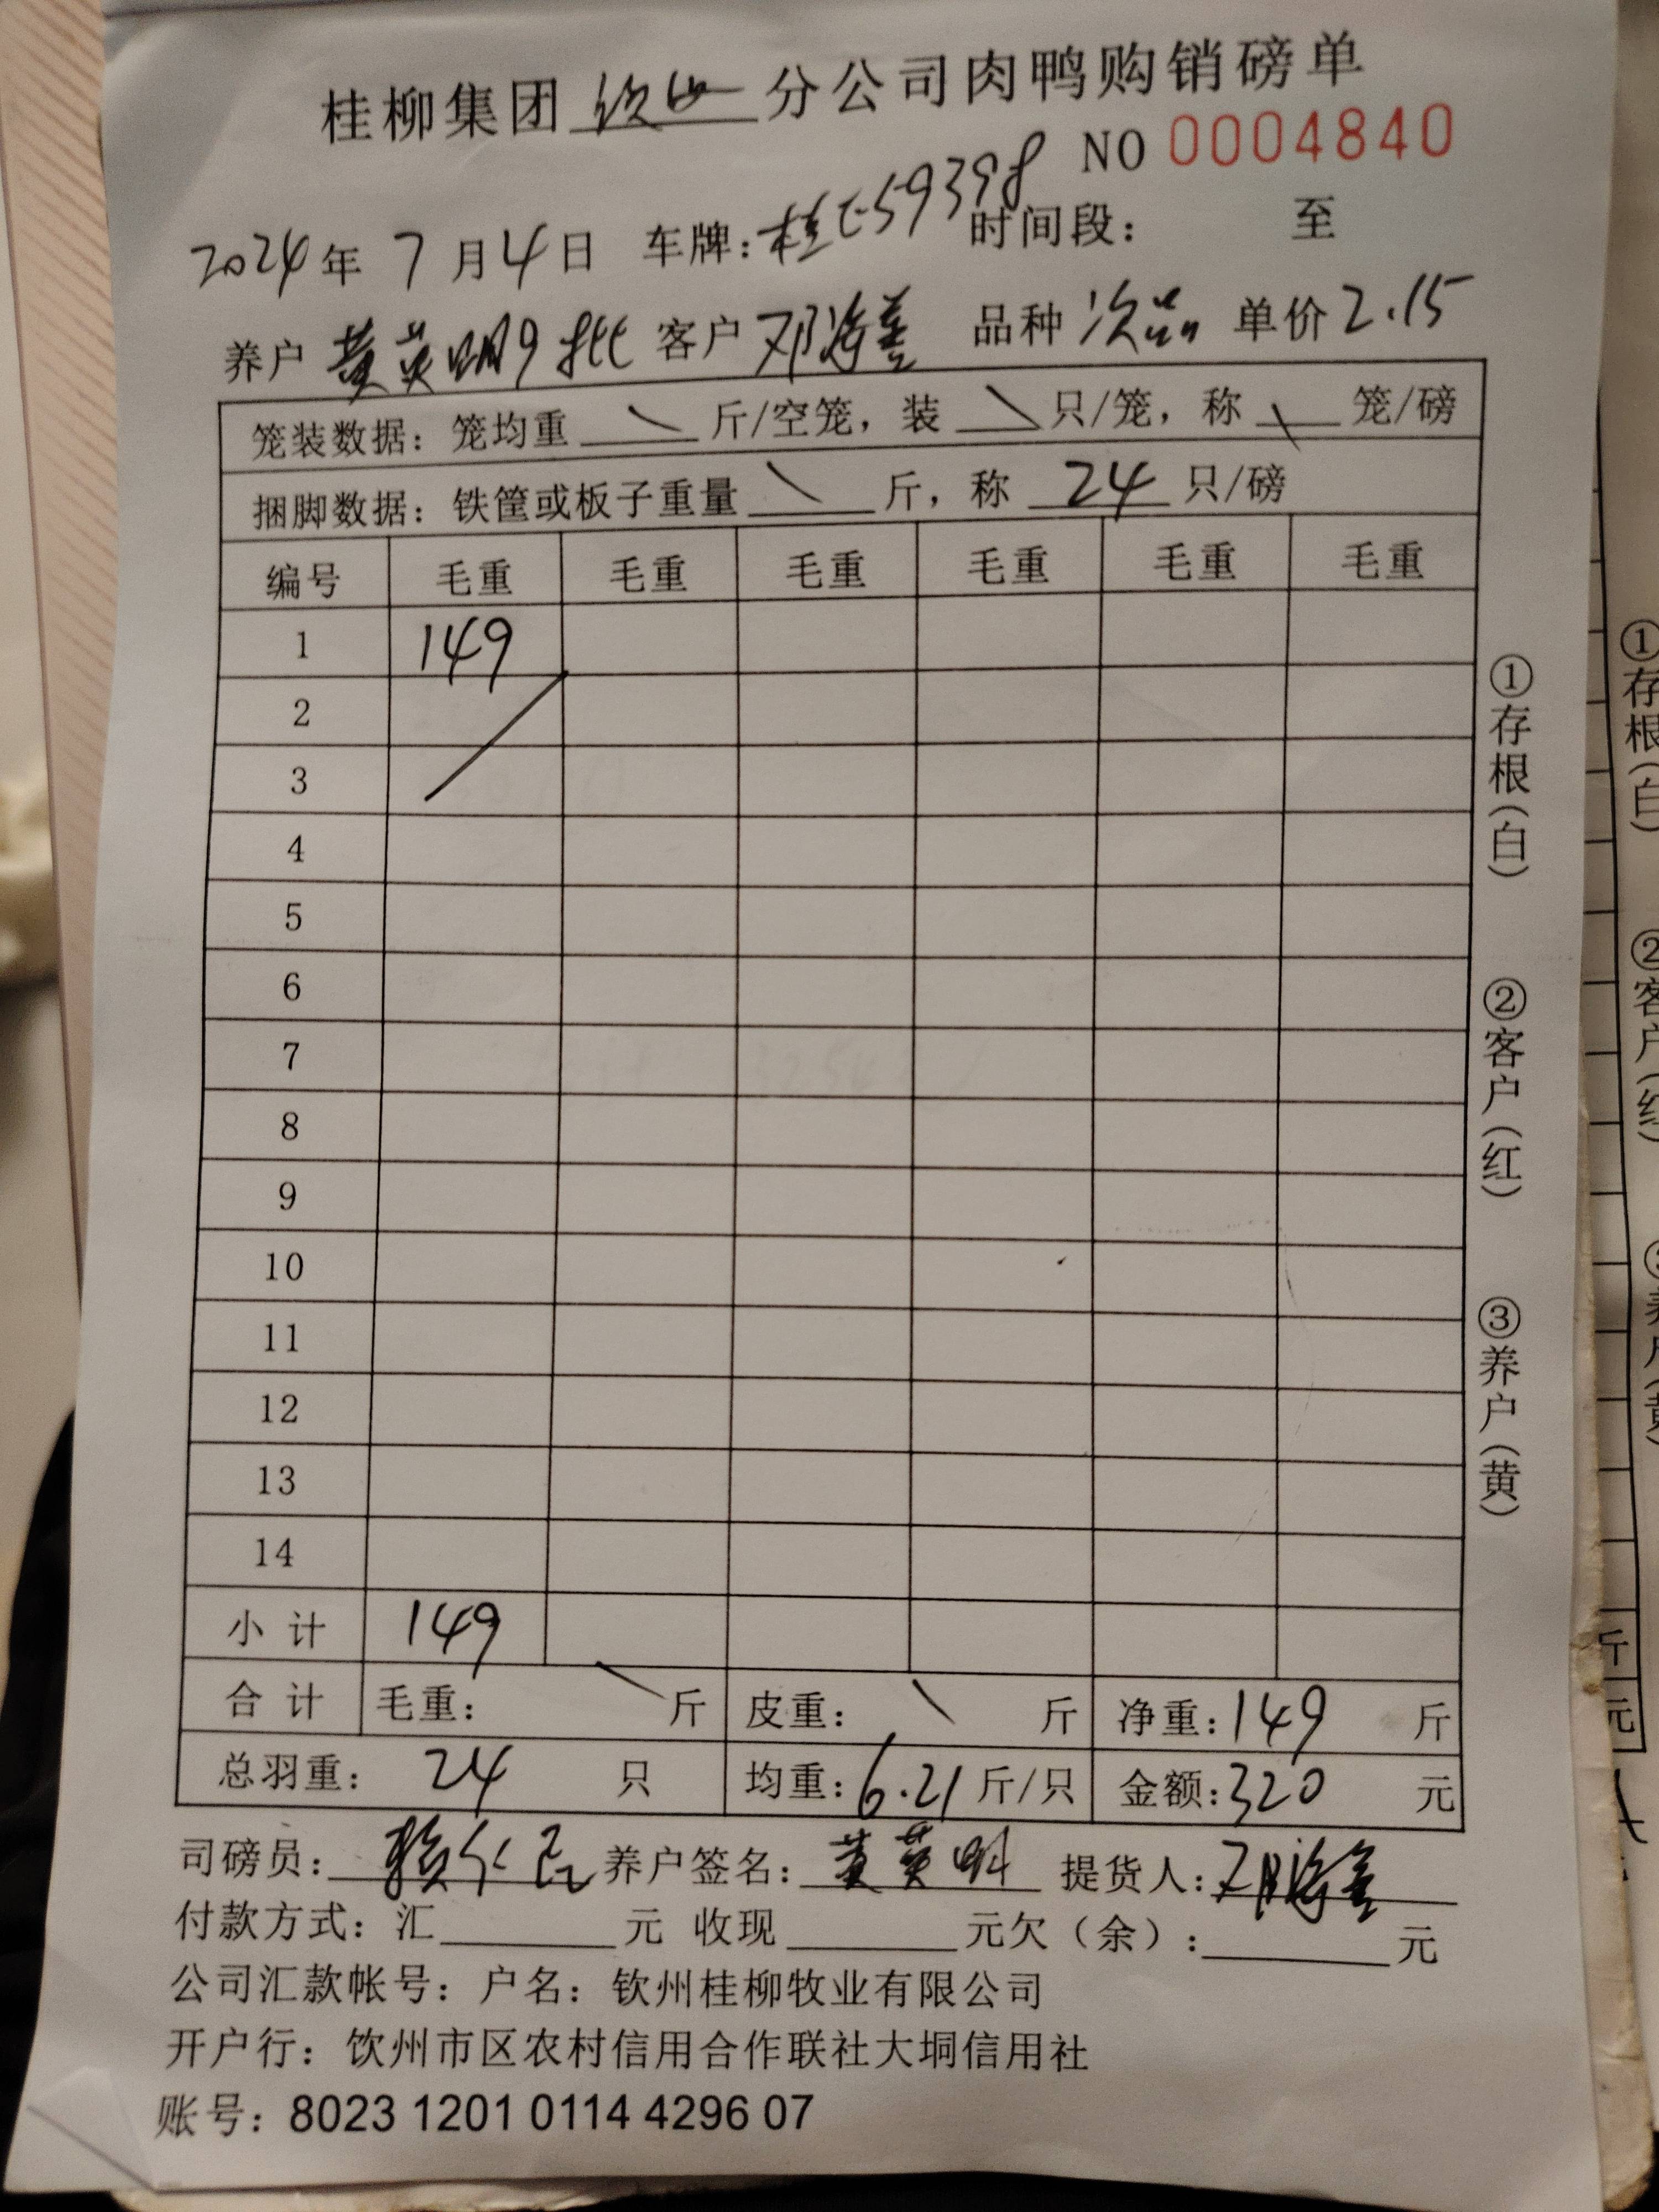 桂柳集团 钦州 分公司肉鸭购销磅单
NO 0004840
2024年 7月4日 车牌:桂E59398 时间段: 至
养户 黄英明9批 客户 邓海 品种 次品 单价2.15
笼装数据:笼均重 斤/空笼,装 只/笼,称 笼/磅
捆脚数据:铁筐或板子重量 斤,称 24 只/磅
编号 毛重 毛重 毛重 毛重 毛重 毛重
1 149
2
3
4
5
6
7
8
9
10
11
12
13
14
小计 149
合计 毛重: 斤 皮重: 斤 净重:149 斤
总羽重: 24 只 均重:6.21斤/只 金额:320 元
司磅员: 养户签名:黄英明 提货人:邓海
付款方式:汇 元 收现 元欠(余): 元
公司汇款帐号:户名:钦州桂柳牧业有限公司
开户行:饮州市区农村信用合作联社大垌信用社
账号:8023 1201 0114 4296 07
①存根(白)
②客户(红)
③养户(黄)
①存根(白)
斤
元